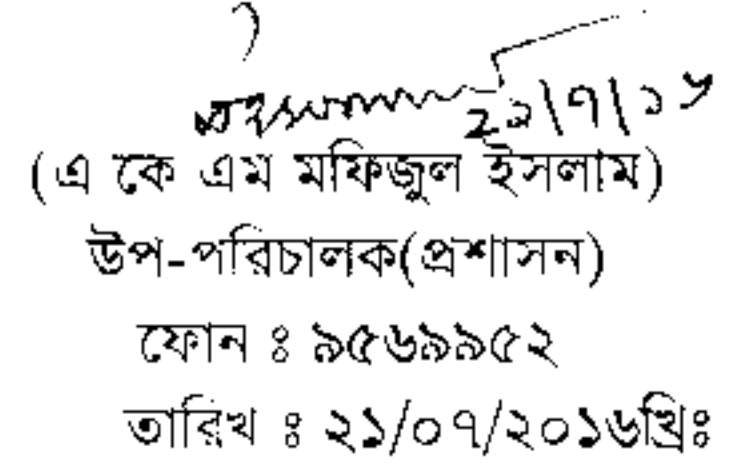 ২১|৭|১৬
(এ কে এম মফিজুল ইসলাম)
উপ-পরিচালক(প্রশাসন)
ফোন ঃ ৯৫৬৯৯৫২
তারিখ ঃ ২১/০৭/২০১৬খ্রিঃ